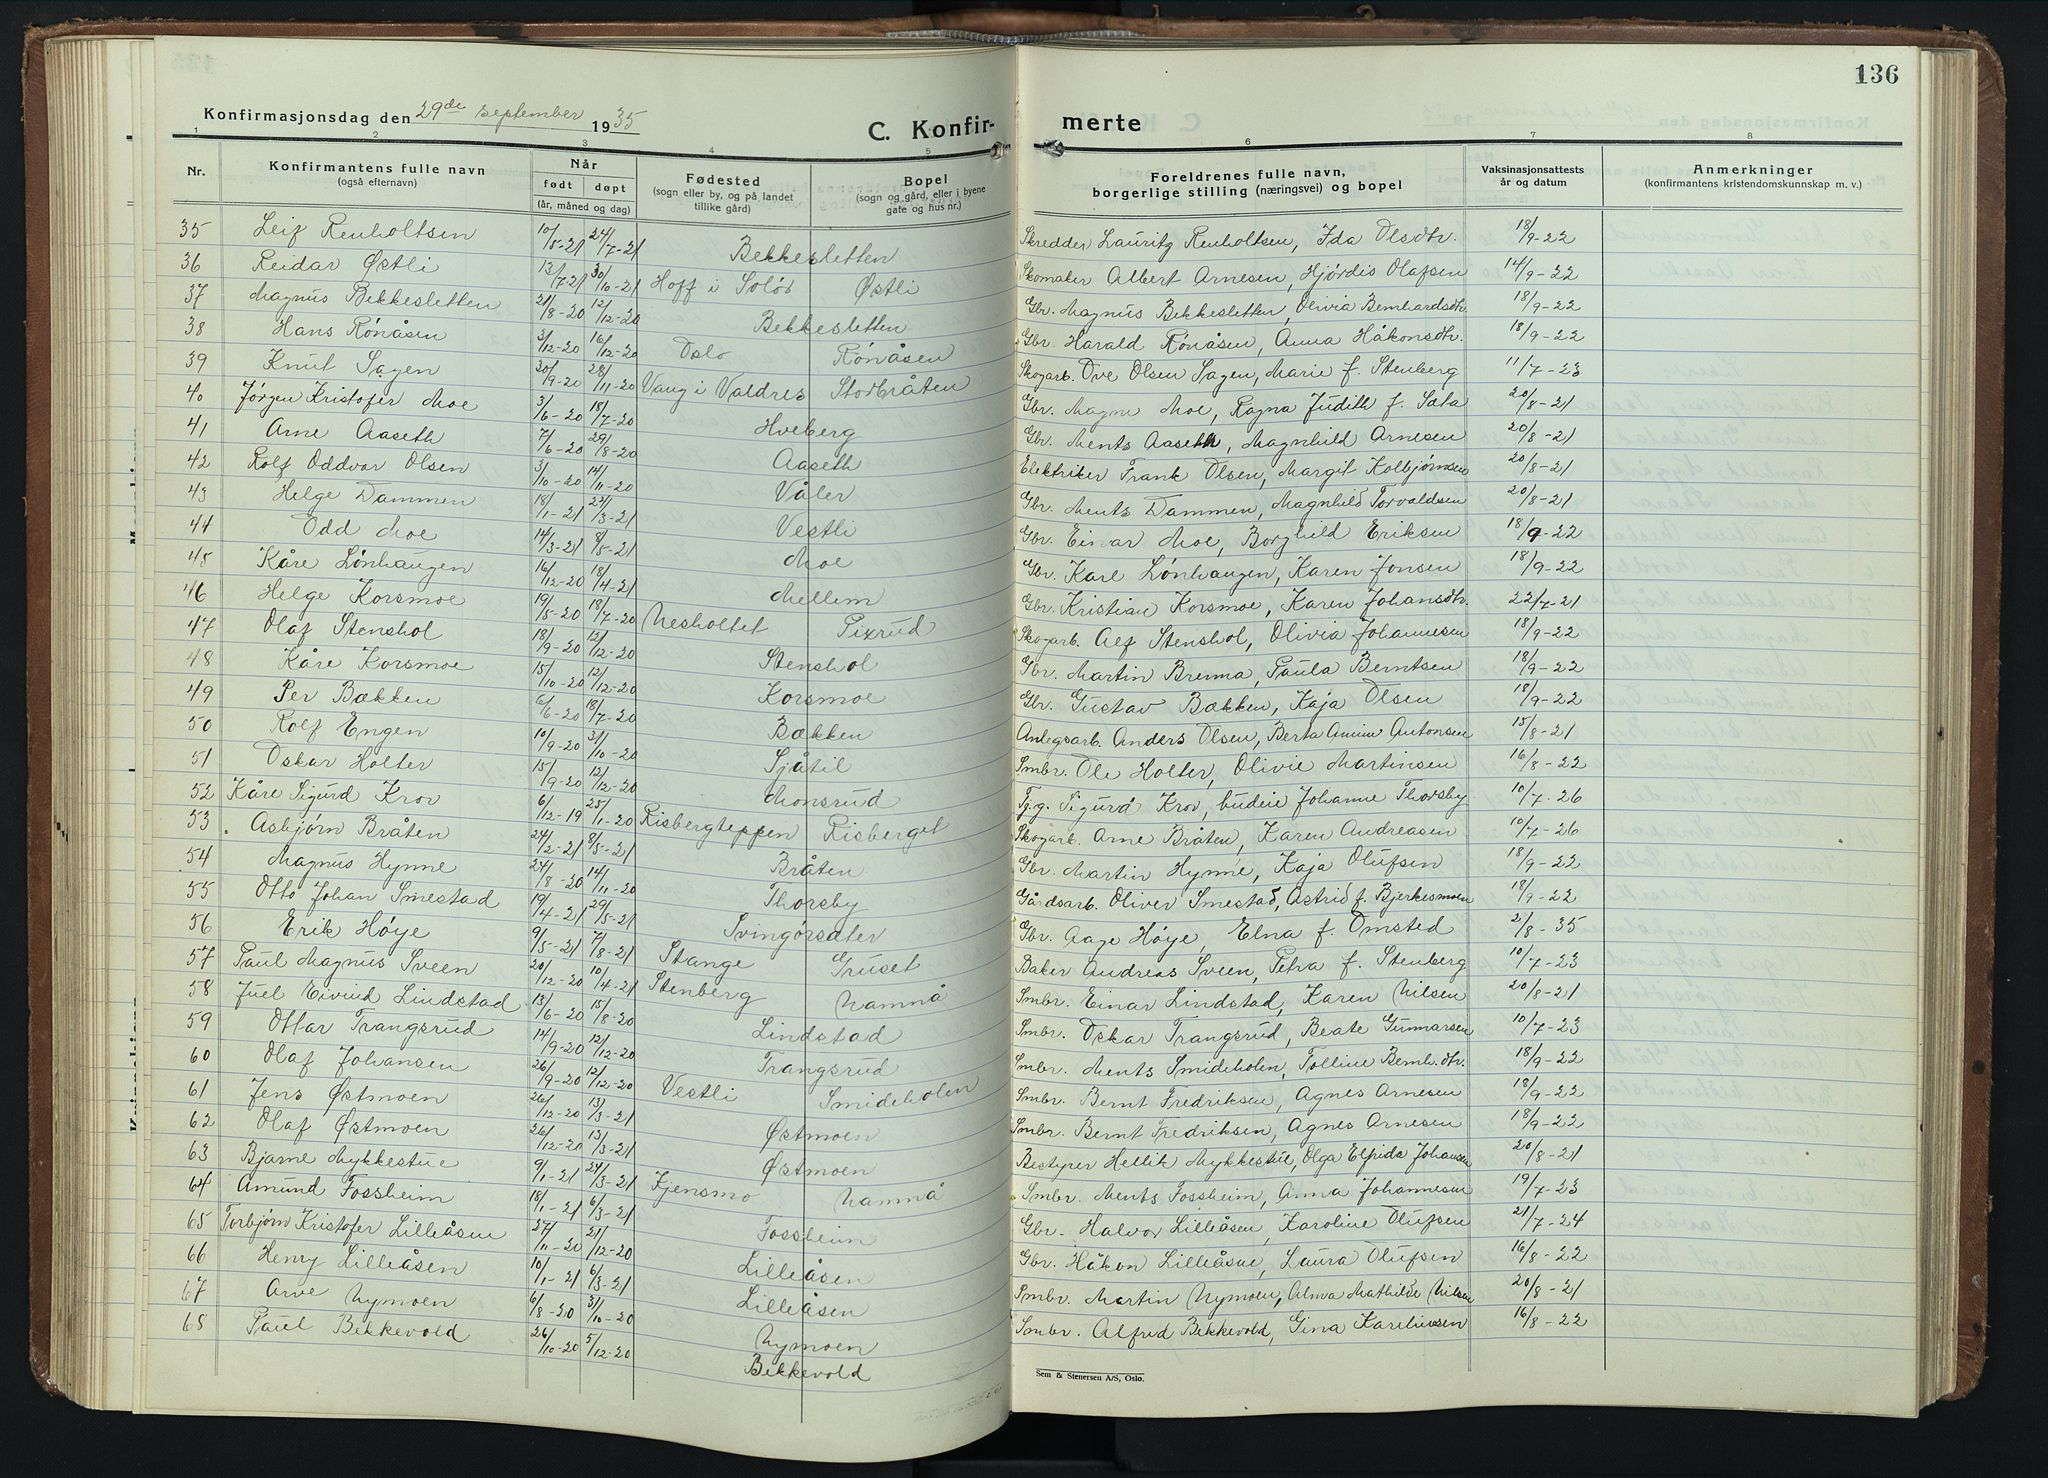 136
Konfirmasjonsdag den 29de september 1935
C. Konfir-
merte
1 2 3 4 5 6 7 8
Nr. Konfirmantens fulle navn (også efternavn) Når født døpt (år, måned og dag) Fødested (sogn eller by, og på landet tillike gård) Bopel (sogn og gård, eller i byene gate og hus nr.) Foreldrenes fulle navn, borgerlige stilling (næringsvei) og bopel Vaksinasjonsattests år og datum Anmerkninger (konfirmantens kristendomskunnskap m. v.)
35 Leif Renholtsen 10/5-21 24/7-21 Bekkesletten Skredder Lauritz Renholtsen, Ida Olsdtr. 18/9-22
36 Reidar Østli 13/7 21 30/10-21 Hoff i Solør Østli Skomaker Albert Arnesen, Hjørdis Olafsen 14/9-22
37 Magnus Bekkesletten 21/8-20 12/12-20 Bekkesletten Gbr. Magnus Bekkesletten, Olivia Bernhardsdtr. 18/9-22
38 Hans Rønåsen 3/12-20 16/12-20 Oslo Rønåsen Gbr. Harald Rønåsen, Anna Håkonsdtr. 18/9-22
39 Knut Sagen 20/9-20 28/11-20 Vang i Valdres Storbråten Skogarb. Ove Olsen Sagen, Marie f. Stenberg 11/7-23
40 Jørgen Kristofer Moe 3/6-20 18/7-20 Hveberg Gbr. Magne Moe, Ragna Judith f. Sæta 20/8-21
41 Arne Aaseth 7/6-20 29/8-20 Aaseth Gbr. Ments Aaseth, Magnhild Arnesen 20/8-21
42 Rolf Oddvar Olsen 3/10-20 14/11-20 Våler Elektriker Frank Olsen, Margit Kolbjørnsen 20/8-21
43 Helge Dammen 18/1-21 22/3-21 Vestli Gbr. Ments Dammen, Magnhild Torvaldsen 20/8-21
44 Odd Moe 14/3-21 8/5-21 Moe Gbr. Einar Moe, Borghild Eriksen 18/9-22
45 Kåre Lønhaugen 16/12-20 18/4-21 Mellem Gbr. Karl Lønhaugen, Karen Jonsen 18/9-22
46 Helge Korsmoe 19/5-20 18/7-20 Nesholtet Pixrud Gbr. Kristian Korsmoe, Karen Johansdtr. 22/7-21
47 Olaf Stenshol 18/9-20 12/12-20 Stenshol Skogarb. Alf Stenshol, Olivia Johannesen 18/9-22
48 Kåre Korsmoe 15/10-20 12/12-20 Korsmoe Gbr. Martin Brenna, Paula Berntsen 18/9-22
49 Per Bækken 6/6-20 18/7-20 Bækken Gbr. Gustav Bækken, Kaja Olsen 18/9-22
50 Rolf Engen 10/9-20 3/10-20 Sjåtil Anlegsarb. Anders Olsen, Berta Antonsen 15/8-21
51 Oskar Holter 15/9-20 12/12-20 Monsrud Smbr. Ole Holter, Olivie Martinsen 16/8-22
52 Kåre Sigurd Krov 6/12-19 25/1-20 Risbergteppen Risberget Tj.g. Sigurd Krov, budeie Johanne Thorsby 10/7-26
53 Asbjørn Bråten 24/2-21 8/5-21 Bråten Skogarb. Arne Bråten, Karen Andreasen 10/7-26
54 Magnus Hynne 24/8-20 14/11-20 Thorsby Gbr. Martin Hynne, Kaja Olufsen 18/9-22
55 Otto Johan Smestad 19/4-21 29/5-21 Svingørsæter Gårdsarb. Oliver Smestad, Astrid f. Bjerkesmoen 18/9-22
56 Erik Høye 9/5-21 7/8-21 Stange Gruset Gbr. Aage Høye, Elna f. Omsted 2/8-35
57 Paul Magnus Sveen 20/12-20 10/4-21 Stenberg Namnå Baker Andreas Sveen, Petra f. Stenberg 10/7-23
58 Juel Eivind Lindstad 13/6-20 15/8-20 Lindstad Smbr. Einar Lindstad, Karen Nilsen 20/8-21
59 Ottar Trangsrud 14/9-20 12/12-20 Trangsrud Smbr. Oskar Trangsrud, Beate Gunnarsen 10/7-23
60 Olaf Johansen 26/9-20 12/12-20 Vestli Smideholen Smbr. Ments Smideholen, Tolline Bernh.dtr. 18/9-22
61 Jens Østmoen 26/12-20 13/3-21 Østmoen Smbr. Bernt Fredriksen, Agnes Arnesen 18/9-22
62 Olaf Østmoen 26/12-20 13/3-21 Østmoen Smbr. Bernt Fredriksen, Agnes Arnesen 18/9-22
63 Bjarne Mykkestue 9/1-21 24/3-21 Kjensmo Namnå Bestyrer Hellik Mykkestue, Olga Elfrida Johansen 20/8-21
64 Amund Fossheim 18/1-21 6/3-21 Fossheim Smbr. Ments Fossheim, Anna Johannesen 19/7-23
65 Torbjørn Kristofer Lilleåsen 27/11-20 21/12-20 Lilleåsen Gbr. Halvor Lilleåsen, Karoline Olufsen 21/7-24
66 Henry Lilleåsen 10/1-21 6/3-21 Lilleåsen Gbr. Håkon Lilleåsen, Laura Olufsen 16/8-22
67 Arve Nymoen 6/8-20 31/10-20 Nymoen Smbr. Martin Nymoen, Alma Mathilde Nilsen 20/8-21
68 Paul Bekkevold 26/10-20 5/12-20 Bekkevold Smbr. Alfred Bekkevold, Gina Karelinesen 16/8-22
Sem & Stenersen A/S, Oslo.